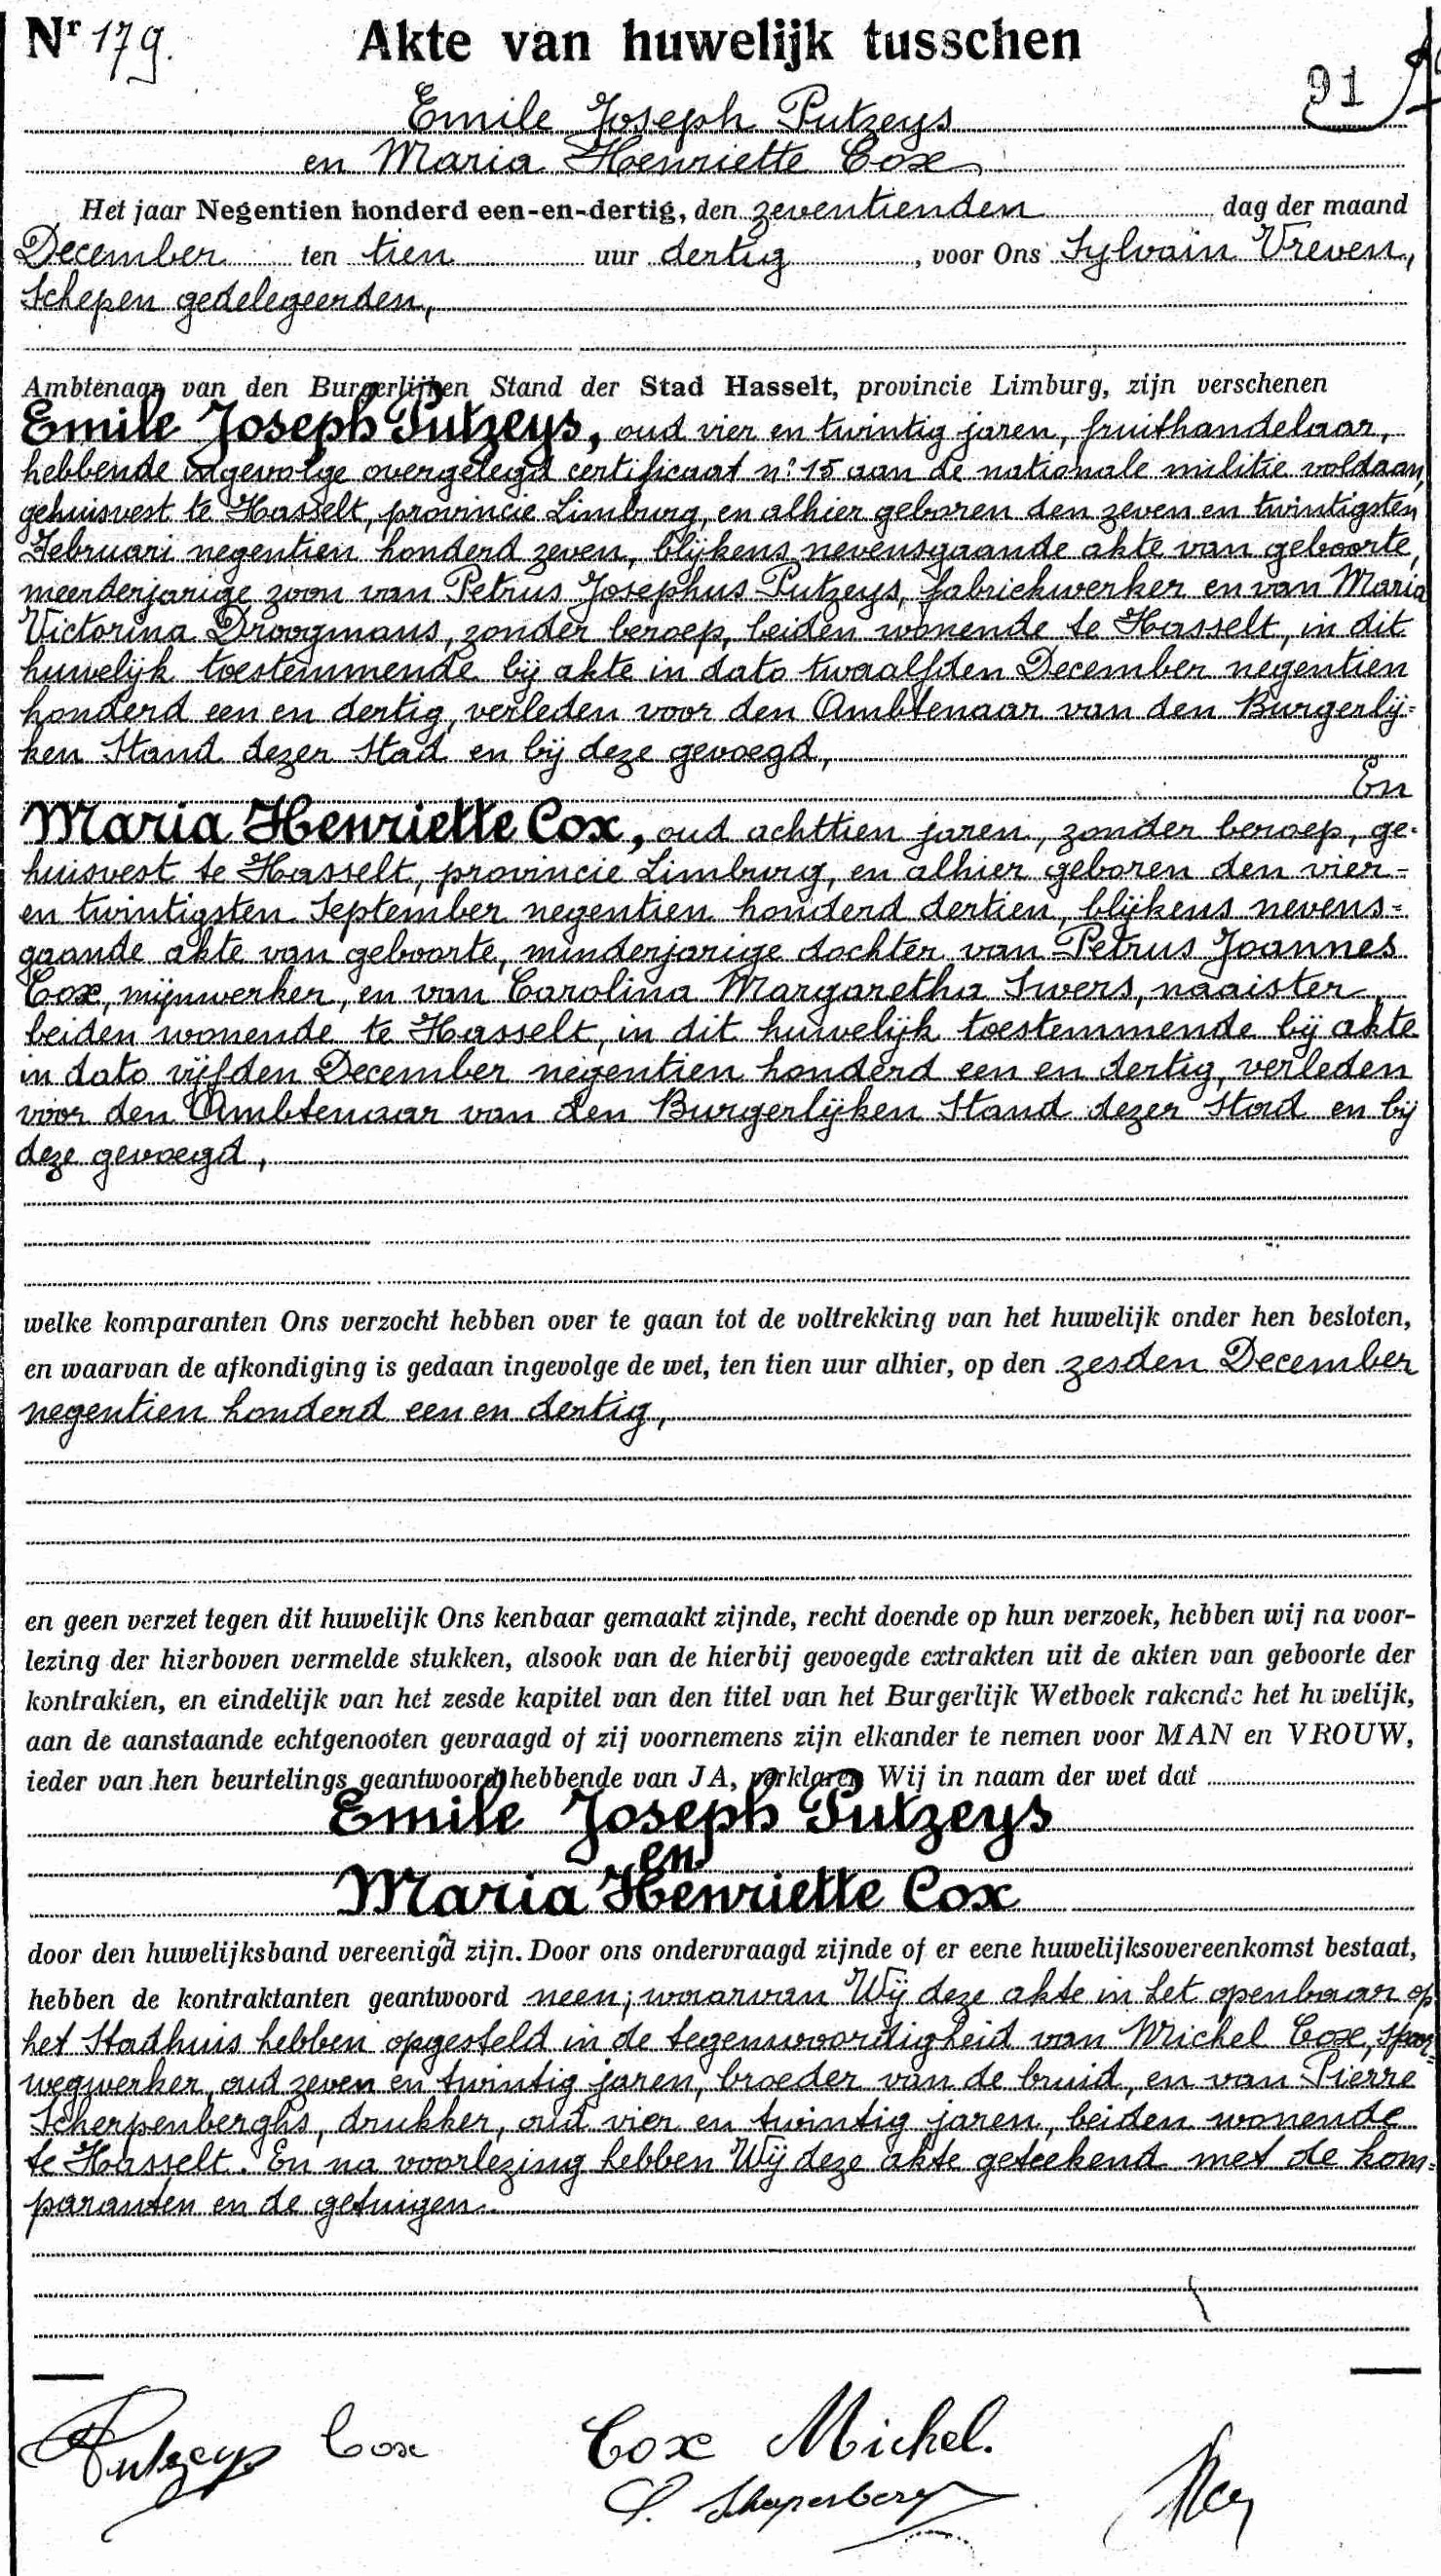 Nr 179. Akte van huwelijk tusschen
91
Emile Joseph Putzeys
en Maria Henriette Cox
Het jaar Negentien honderd een-en-dertig, den zeventienden dag der maand
December ten tien uur dertig, voor Ons Sylvain Vreven,
Schepen gedelegeerden,
Ambtenaar van den Burgerlijken Stand der Stad Hasselt, provincie Limburg, zijn verschenen
Emile Joseph Putzeys, oud vier en twintig jaren, fruithandelaar,
hebbende ingevolge overgelegd certificaat n° 15 aan de nationale militie voldaan,
gehuisvest te Hasselt, provincie Limburg, en alhier geboren den zeven en twintigsten
Februari negentien honderd zeven, blijkens nevensgaande akte van geboorte,
meerderjarige zoon van Petrus Josephus Putzeys, fabriekwerker en van Maria
Victorina Droogmans, zonder beroep, beiden wonende te Hasselt, in dit
huwelijk toestemmende bij akte in dato twaalfden December negentien
honderd een en dertig, verleden voor den Ambtenaar van den Burgerlij=
ken Stand dezer Stad en bij deze gevoegd,
En
Maria Henriette Cox, oud achttien jaren, zonder beroep, ge-
huisvest te Hasselt, provincie Limburg, en alhier geboren den vier-
en twintigsten September negentien honderd dertien, blijkens nevens=
gaande akte van geboorte, minderjarige dochter van Petrus Joannes
Cox, mijnwerker, en van Carolina Margaretha Swers, naaister,
beiden wonende te Hasselt, in dit huwelijk toestemmende bij akte
in dato vijfden December negentien honderd een en dertig, verleden
voor den Ambtenaar van den Burgerlijken Stand dezer Stad en bij
deze gevoegd,
welke komparanten Ons verzocht hebben over te gaan tot de voltrekking van het huwelijk onder hen besloten,
en waarvan de afkondiging is gedaan ingevolge de wet, ten tien uur alhier, op den zesden December
negentien honderd een en dertig,
en geen verzet tegen dit huwelijk Ons kenbaar gemaakt zijnde, recht doende op hun verzoek, hebben wij na voor-
lezing der hierboven vermelde stukken, alsook van de hierbij gevoegde extrakten uit de akten van geboorte der
kontrakten, en eindelijk van het zesde kapitel van den titel van het Burgerlijk Wetboek rakende het huwelijk,
aan de aanstaande echtgenooten gevraagd of zij voornemens zijn elkander te nemen voor MAN en VROUW,
ieder van hen beurtelings geantwoord hebbende van JA, verklaren Wij in naam der wet dat
Emile Joseph Putzeys
en
Maria Henriette Cox
door den huwelijksband vereenigd zijn. Door ons ondervraagd zijnde of er eene huwelijksovereenkomst bestaat,
hebben de kontraktanten geantwoord neen; waarvan Wij deze akte in het openbaar op
het Stadhuis hebben opgesteld in de tegenwoordigheid van Michel Cox, spoor=
wegwerker, oud zeven en twintig jaren, broeder van de bruid, en van Pierre
Scherpenberghs, drukker, oud vier en twintig jaren, beiden wonende
te Hasselt. En na voorlezing hebben Wij deze akte geteekend met de kom=
paranten en de getuigen.
Putzeys Cox Cox Michel.